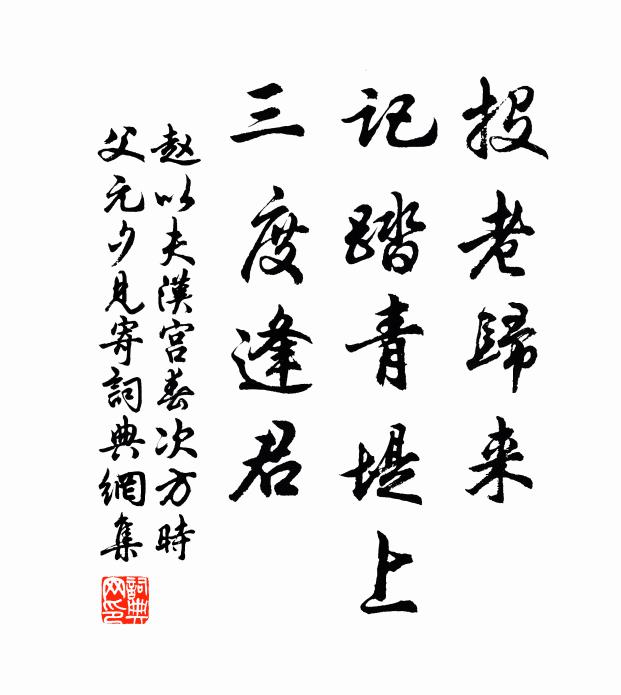 投老歸来
記踏青堤上
三度逢君
赵以夫漢宮春次方時
父元夕見寄詞典網集
詞典网印